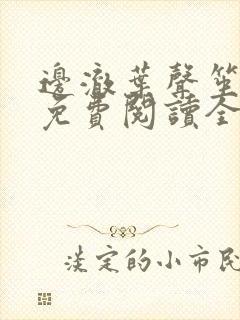 邊澈葉聲笙
免費閱讀全
淡定的小市民